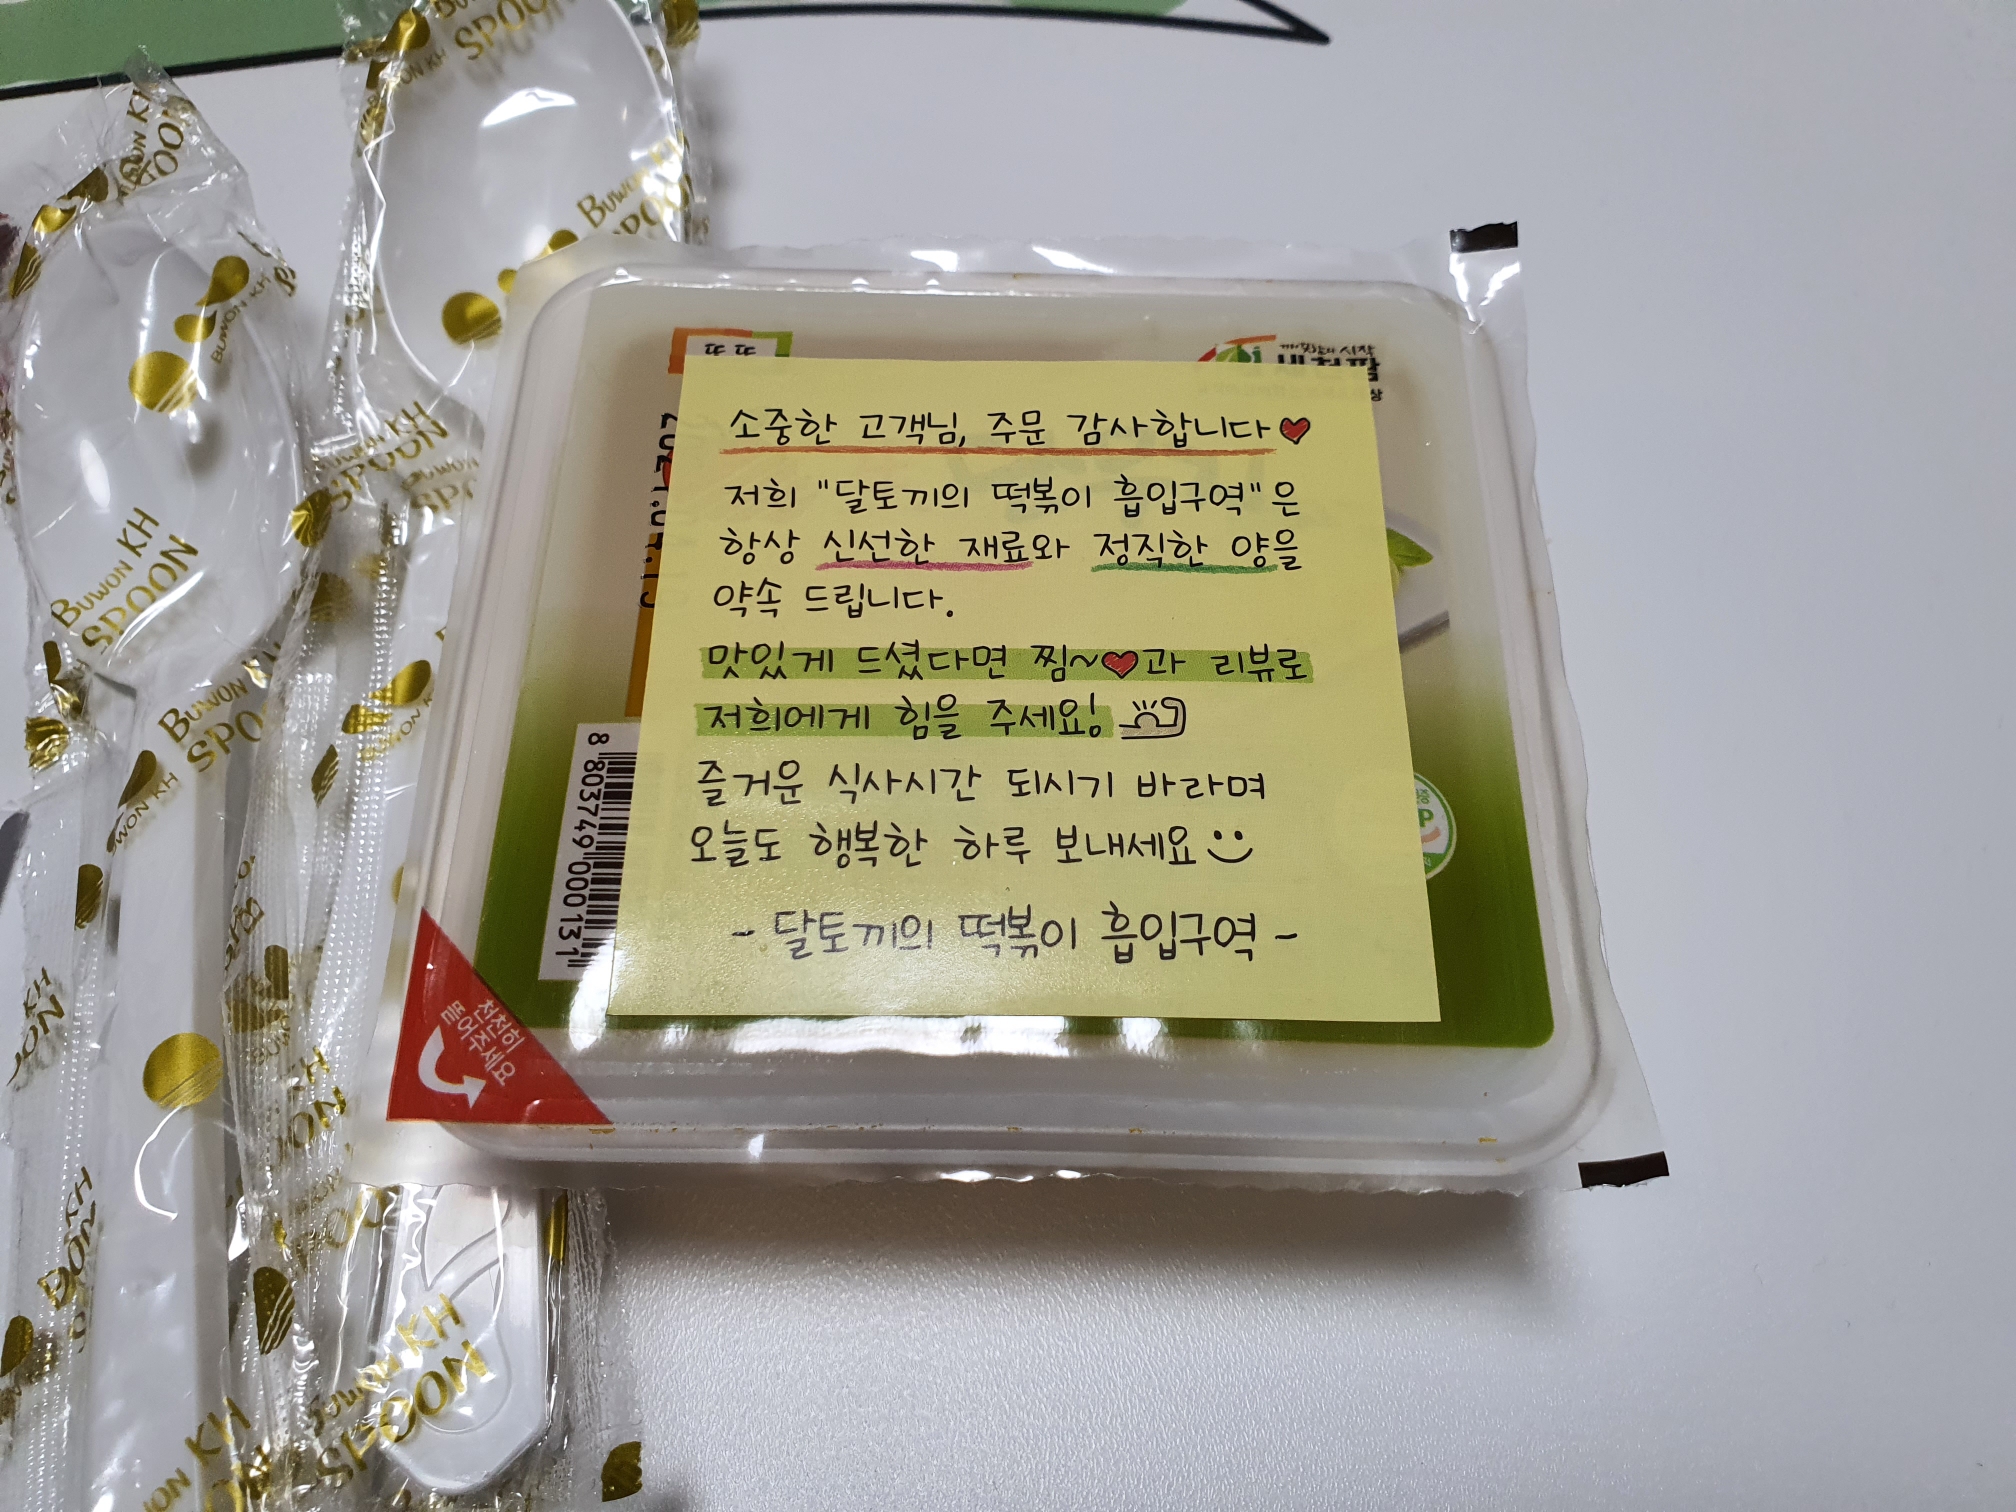 소중한 고객님, 주문 감사합니다♥
저희 "달토끼의 떡볶이 흡입구역"은
항상 신선한 재료와 정직한 양을
약속 드립니다.
맛있게 드셨다면 찜~♥과 리뷰로
저희에게 힘을 주세요!
즐거운 식사시간 되시기 바라며
오늘도 행복한 하루 보내세요
- 달토끼의 떡볶이 흡입구역 -
8 803749 000131
천천히
뜯어주세요
BUWON KH
SPOON
BUWON KH
SPOON
BUWON KH
SPOON
BUWON KH
SPOON